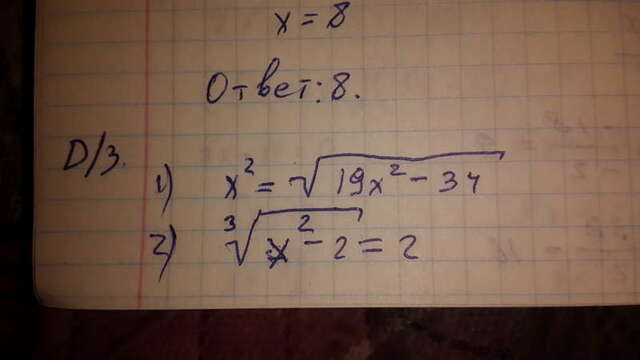 x = 8
Ответ: 8.
D/з.
1) x² = √(19x² - 34)
2) ∛(x² - 2) = 2